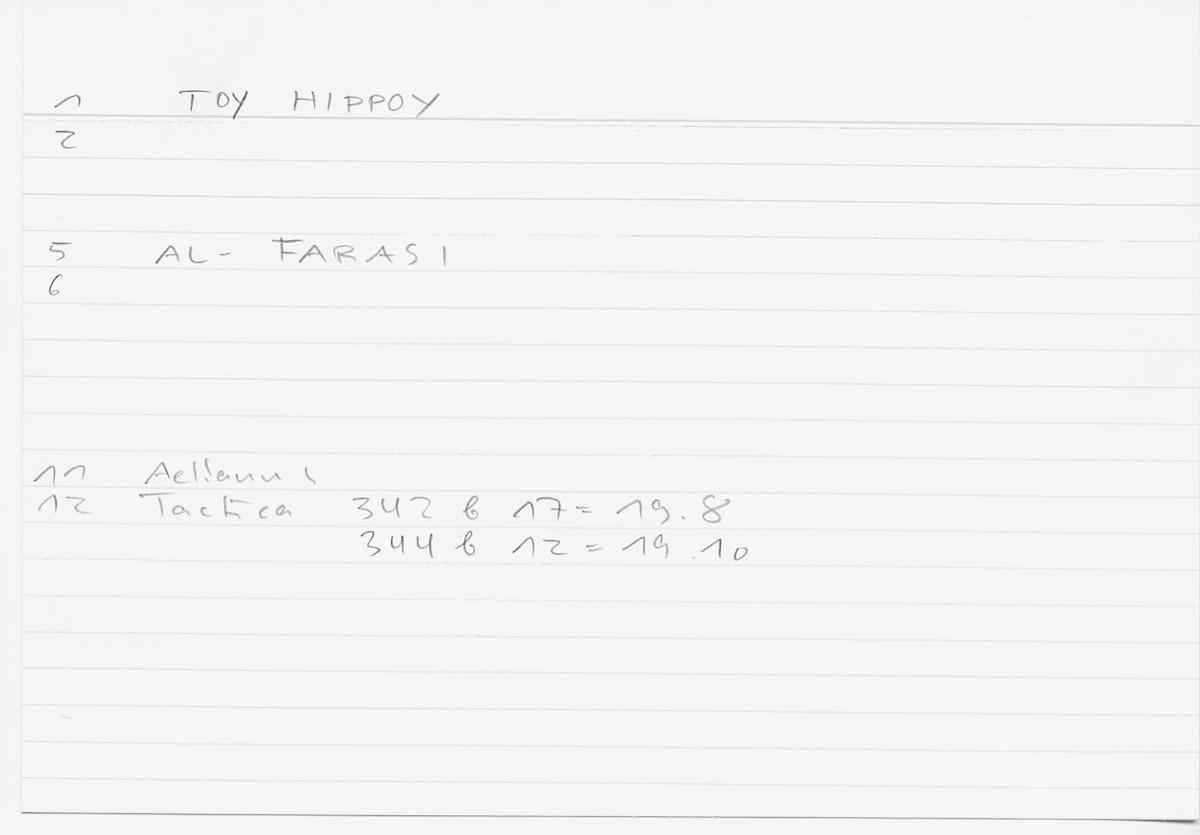 1 TOY HIPPOY
2
5 AL- FARASI
6
11 Aelianus
12 Tactica 342 b 17 = 19.8
344 b 12 = 19.10